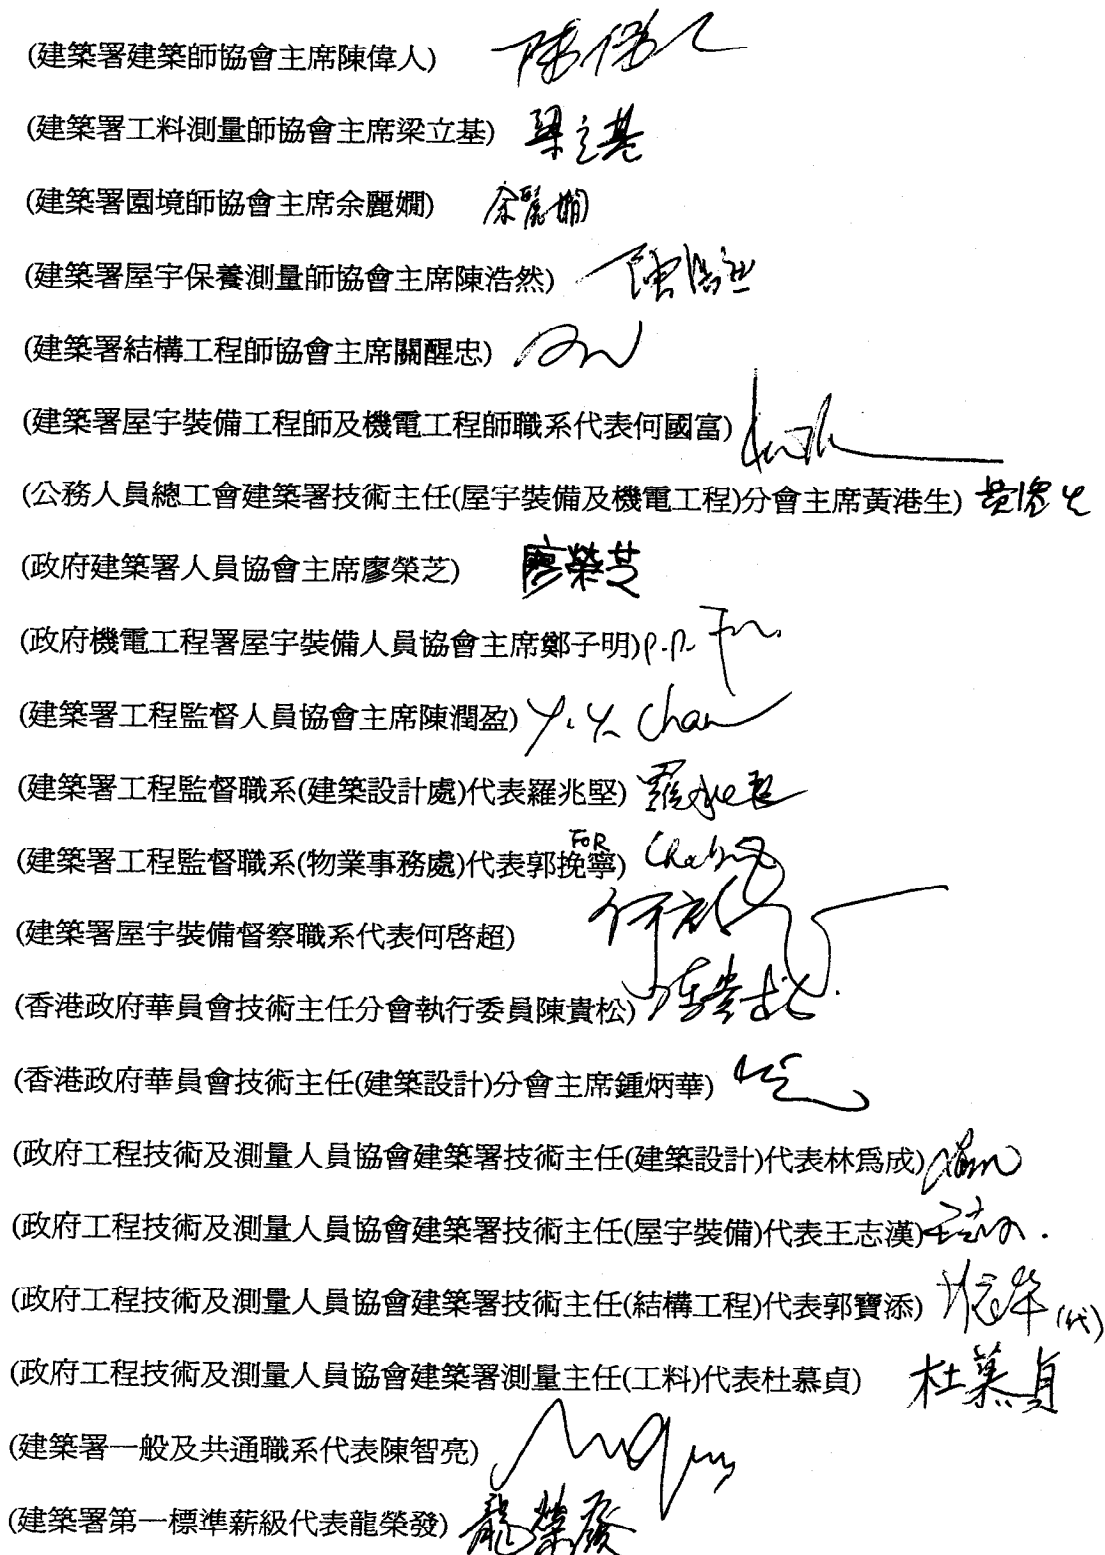 (建築署建築師協會主席陳偉人) 陳偉人
(建築署工料測量師協會主席梁立基) 梁立基
(建築署園境師協會主席余麗嫺) 余麗嫺
(建築署屋宇保養測量師協會主席陳浩然) 陳浩然
(建築署結構工程師協會主席關醒忠)
(建築署屋宇裝備工程師及機電工程師職系代表何國富)
(公務人員總工會建築署技術主任(屋宇裝備及機電工程)分會主席黃港生) 黃港生
(政府建築署人員協會主席廖榮芝) 廖榮芝
(政府機電工程署屋宇裝備人員協會主席鄭子明) p.p.
(建築署工程監督人員協會主席陳潤盈) Y. Y. Chan
(建築署工程監督職系(建築設計處)代表羅兆堅) 羅兆堅
(建築署工程監督職系(物業事務處)代表郭挽寧) FOR
(建築署屋宇裝備督察職系代表何啓超) 何啓超
(香港政府華員會技術主任分會執行委員陳貴松) 陳貴松
(香港政府華員會技術主任(建築設計)分會主席鍾炳華)
(政府工程技術及測量人員協會建築署技術主任(建築設計)代表林爲成) Lam
(政府工程技術及測量人員協會建築署技術主任(屋宇裝備)代表王志漢) 王志漢
(政府工程技術及測量人員協會建築署技術主任(結構工程)代表郭寶添) (代)
(政府工程技術及測量人員協會建築署測量主任(工料)代表杜慕貞) 杜慕貞
(建築署一般及共通職系代表陳智亮)
(建築署第一標準薪級代表龍榮發) 龍榮發